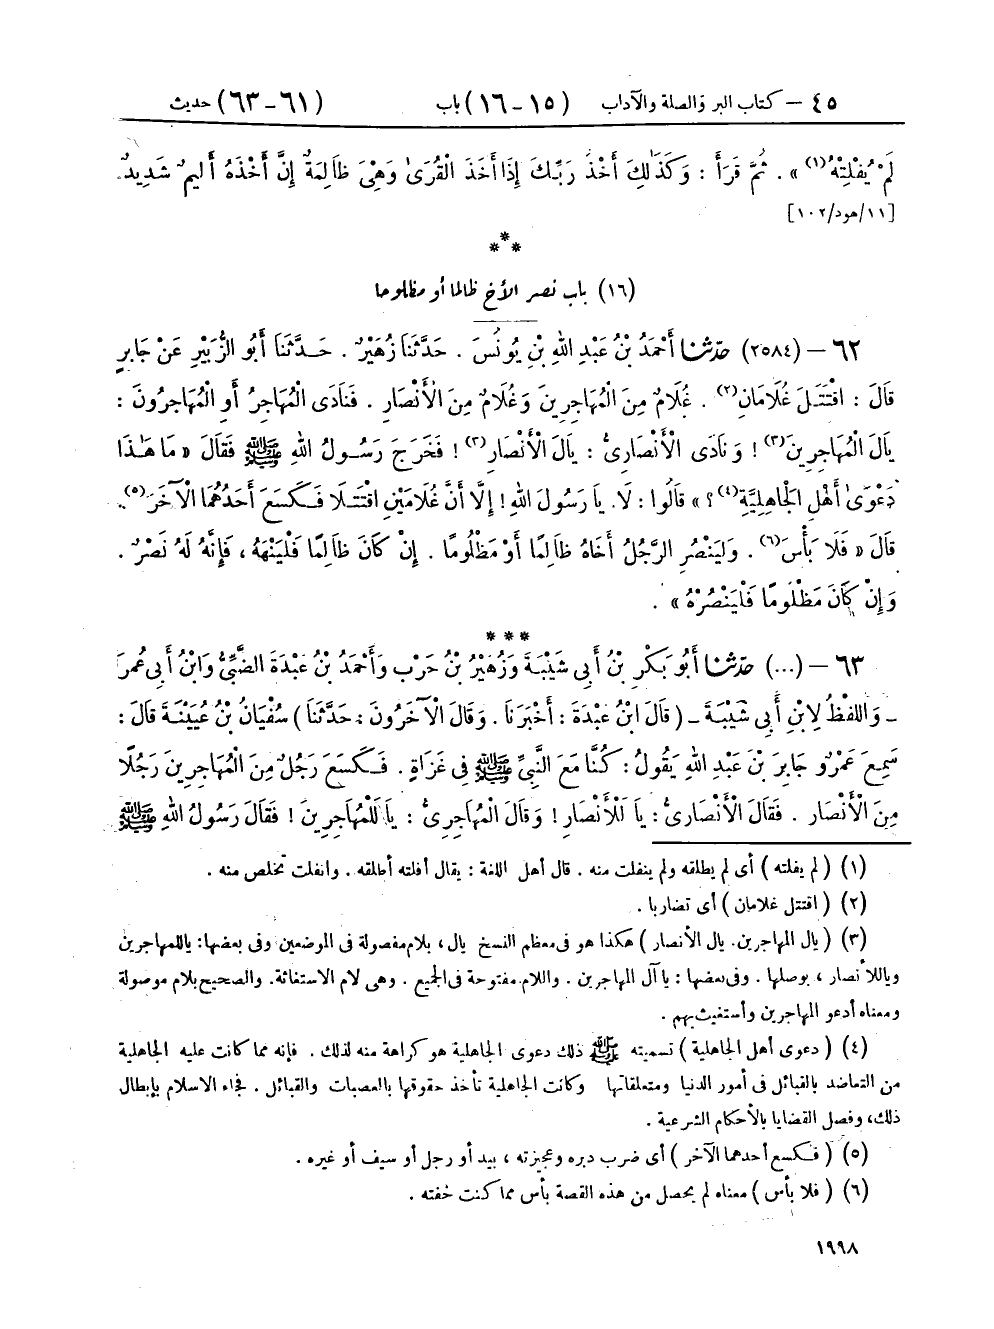 ٤٥ – كتاب البر والصلة والآداب (١٥-١٦) باب (٦١-٦٣) حديث
لَمْ يُفْلِتْهُ(١) » . ثُمَّ قَرَأَ : وَكَذَٰلِكَ أَخْذُ رَبِّكَ إِذَا أَخَذَ الْقُرَىٰ وَهِيَ ظَالِمَةٌ إِنَّ أَخْذَهُ أَلِيمٌ شَدِيدٌ
[١١/هود/١٠٢]
***
(١٦) باب نصر الأخ ظالما أو مظلوما
٦٢ – (٢٥٨٤) حدّثنا أَحْمَدُ بْنُ عَبْدِ اللهِ بْنِ يُونُسَ . حَدَّثَنَا زُهَيْرٌ . حَدَّثَنَا أَبُو الزُّبَيْرِ عَنْ جَابِرٍ
قَالَ : اقْتَتَلَ غُلَامَانِ(٢) . غُلَامٌ مِنَ الْمُهَاجِرِينَ وَغُلَامٌ مِنَ الْأَنْصَارِ . فَنَادَى الْمُهَاجِرُ أَوِ الْمُهَاجِرُونَ :
يَالَ الْمُهَاجِرِينَ(٣) ! وَنَادَى الْأَنْصَارِىُّ : يَالَ الْأَنْصَارِ(٣) ! فَخَرَجَ رَسُولُ اللهِ ﷺ فَقَالَ « مَا هٰذَا
دَعْوَىٰ أَهْلِ الْجَاهِلِيَّةِ(٤) ؟ » قَالُوا : لَا. يَا رَسُولَ اللهِ ! إِلَّا أَنَّ غُلَامَيْنِ اقْتَتَلَا فَكَسَعَ أَحَدُهُمَا الْآخَرَ(٥).
قَالَ « فَلَا بَأْسَ(٦) . وَلْيَنْصُرِ الرَّجُلُ أَخَاهُ ظَالِمًا أَوْ مَظْلُومًا . إِنْ كَانَ ظَالِمًا فَلْيَنْهَهُ ، فَإِنَّهُ لَهُ نَصْرٌ .
وَإِنْ كَانَ مَظْلُومًا فَلْيَنْصُرْهُ » .
***
٦٣ – (...) حدّثنا أَبُو بَكْرِ بْنُ أَبِي شَيْبَةَ وَزُهَيْرُ بْنُ حَرْبٍ وَأَحْمَدُ بْنُ عَبْدَةَ الضَّبِّيُّ وَابْنُ أَبِي عُمَرَ
– وَاللفْظُ لِابْنِ أَبِي شَيْبَةَ – ( قَالَ ابْنُ عَبْدَةَ : أَخْبَرَنَا . وَقَالَ الْآخَرُونَ : حَدَّثَنَا ) سُفْيَانُ بْنُ عُيَيْنَةَ قَالَ :
سَمِعَ عَمْرٌو جَابِرَ بْنَ عَبْدِ اللهِ يَقُولُ : كُنَّا مَعَ النَّبِيِّ ﷺ فِي غَزَاةٍ . فَكَسَعَ رَجُلٌ مِنَ الْمُهَاجِرِينَ رَجُلًا
مِنَ الْأَنْصَارِ . فَقَالَ الْأَنْصَارِىُّ : يَا لَلْأَنْصَارِ ! وَقَالَ الْمُهَاجِرِىُّ : يَا لَلْمُهَاجِرِينَ ! فَقَالَ رَسُولُ اللهِ ﷺ
(١) ( لم يفلته ) أى لم يطلقه ولم ينفلت منه . قال أهل اللغة : يقال أفلته أطلقه . وانفلت تخلص منه .
(٢) ( اقتتل غلامان ) أى تضاربا .
(٣) ( يال المهاجرين. يال الأنصار ) هكذا هو فى معظم النسخ يال ، بلام مفصولة فى الموضعين وفى بعضها : ياللمهاجرين
وياللأنصار ، بوصلها . وفى بعضها : يا آل المهاجرين . واللام مفتوحة فى الجميع . وهى لام الاستغاثة . والصحيح بلام موصولة
ومعناه أدعو المهاجرين وأستغيث بهم .
(٤) ( دعوى أهل الجاهلية ) تسميته ﷺ ذلك دعوى الجاهلية هو كراهة منه لذلك . فإنه مما كانت عليه الجاهلية
من التعاضد بالقبائل فى أمور الدنيا ومتعلقاتها وكانت الجاهلية تأخذ حقوقها بالعصبات والقبائل . فجاء الاسلام بإبطال
ذلك، وفصل القضايا بالأحكام الشرعية .
(٥) ( فكسع أحدهما الآخر ) أى ضرب دبره وعجيزته ، بيد أو رجل أو سيف أو غيره .
(٦) ( فلا بأس ) معناه لم يحصل من هذه القصة بأس مما كنت خفته .
١٩٩٨